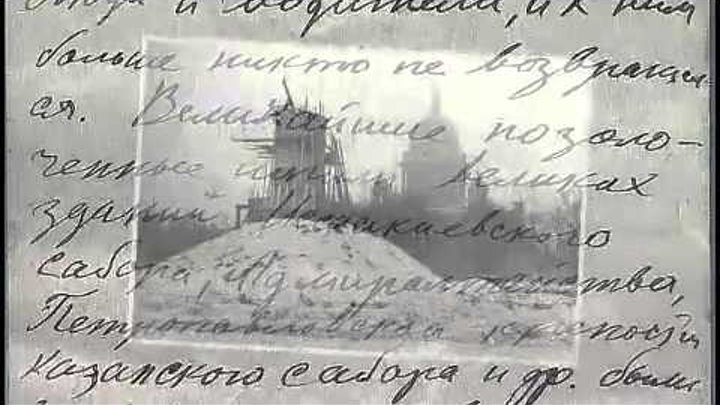 и водители, и к ним
больше никто не возвращал-
ся. Величайшие позоло-
ченные шпили великах
зданий Исаакиевского
сабора, Адмиралтейства,
Петропавловская крепости
казанского сабора и др. были